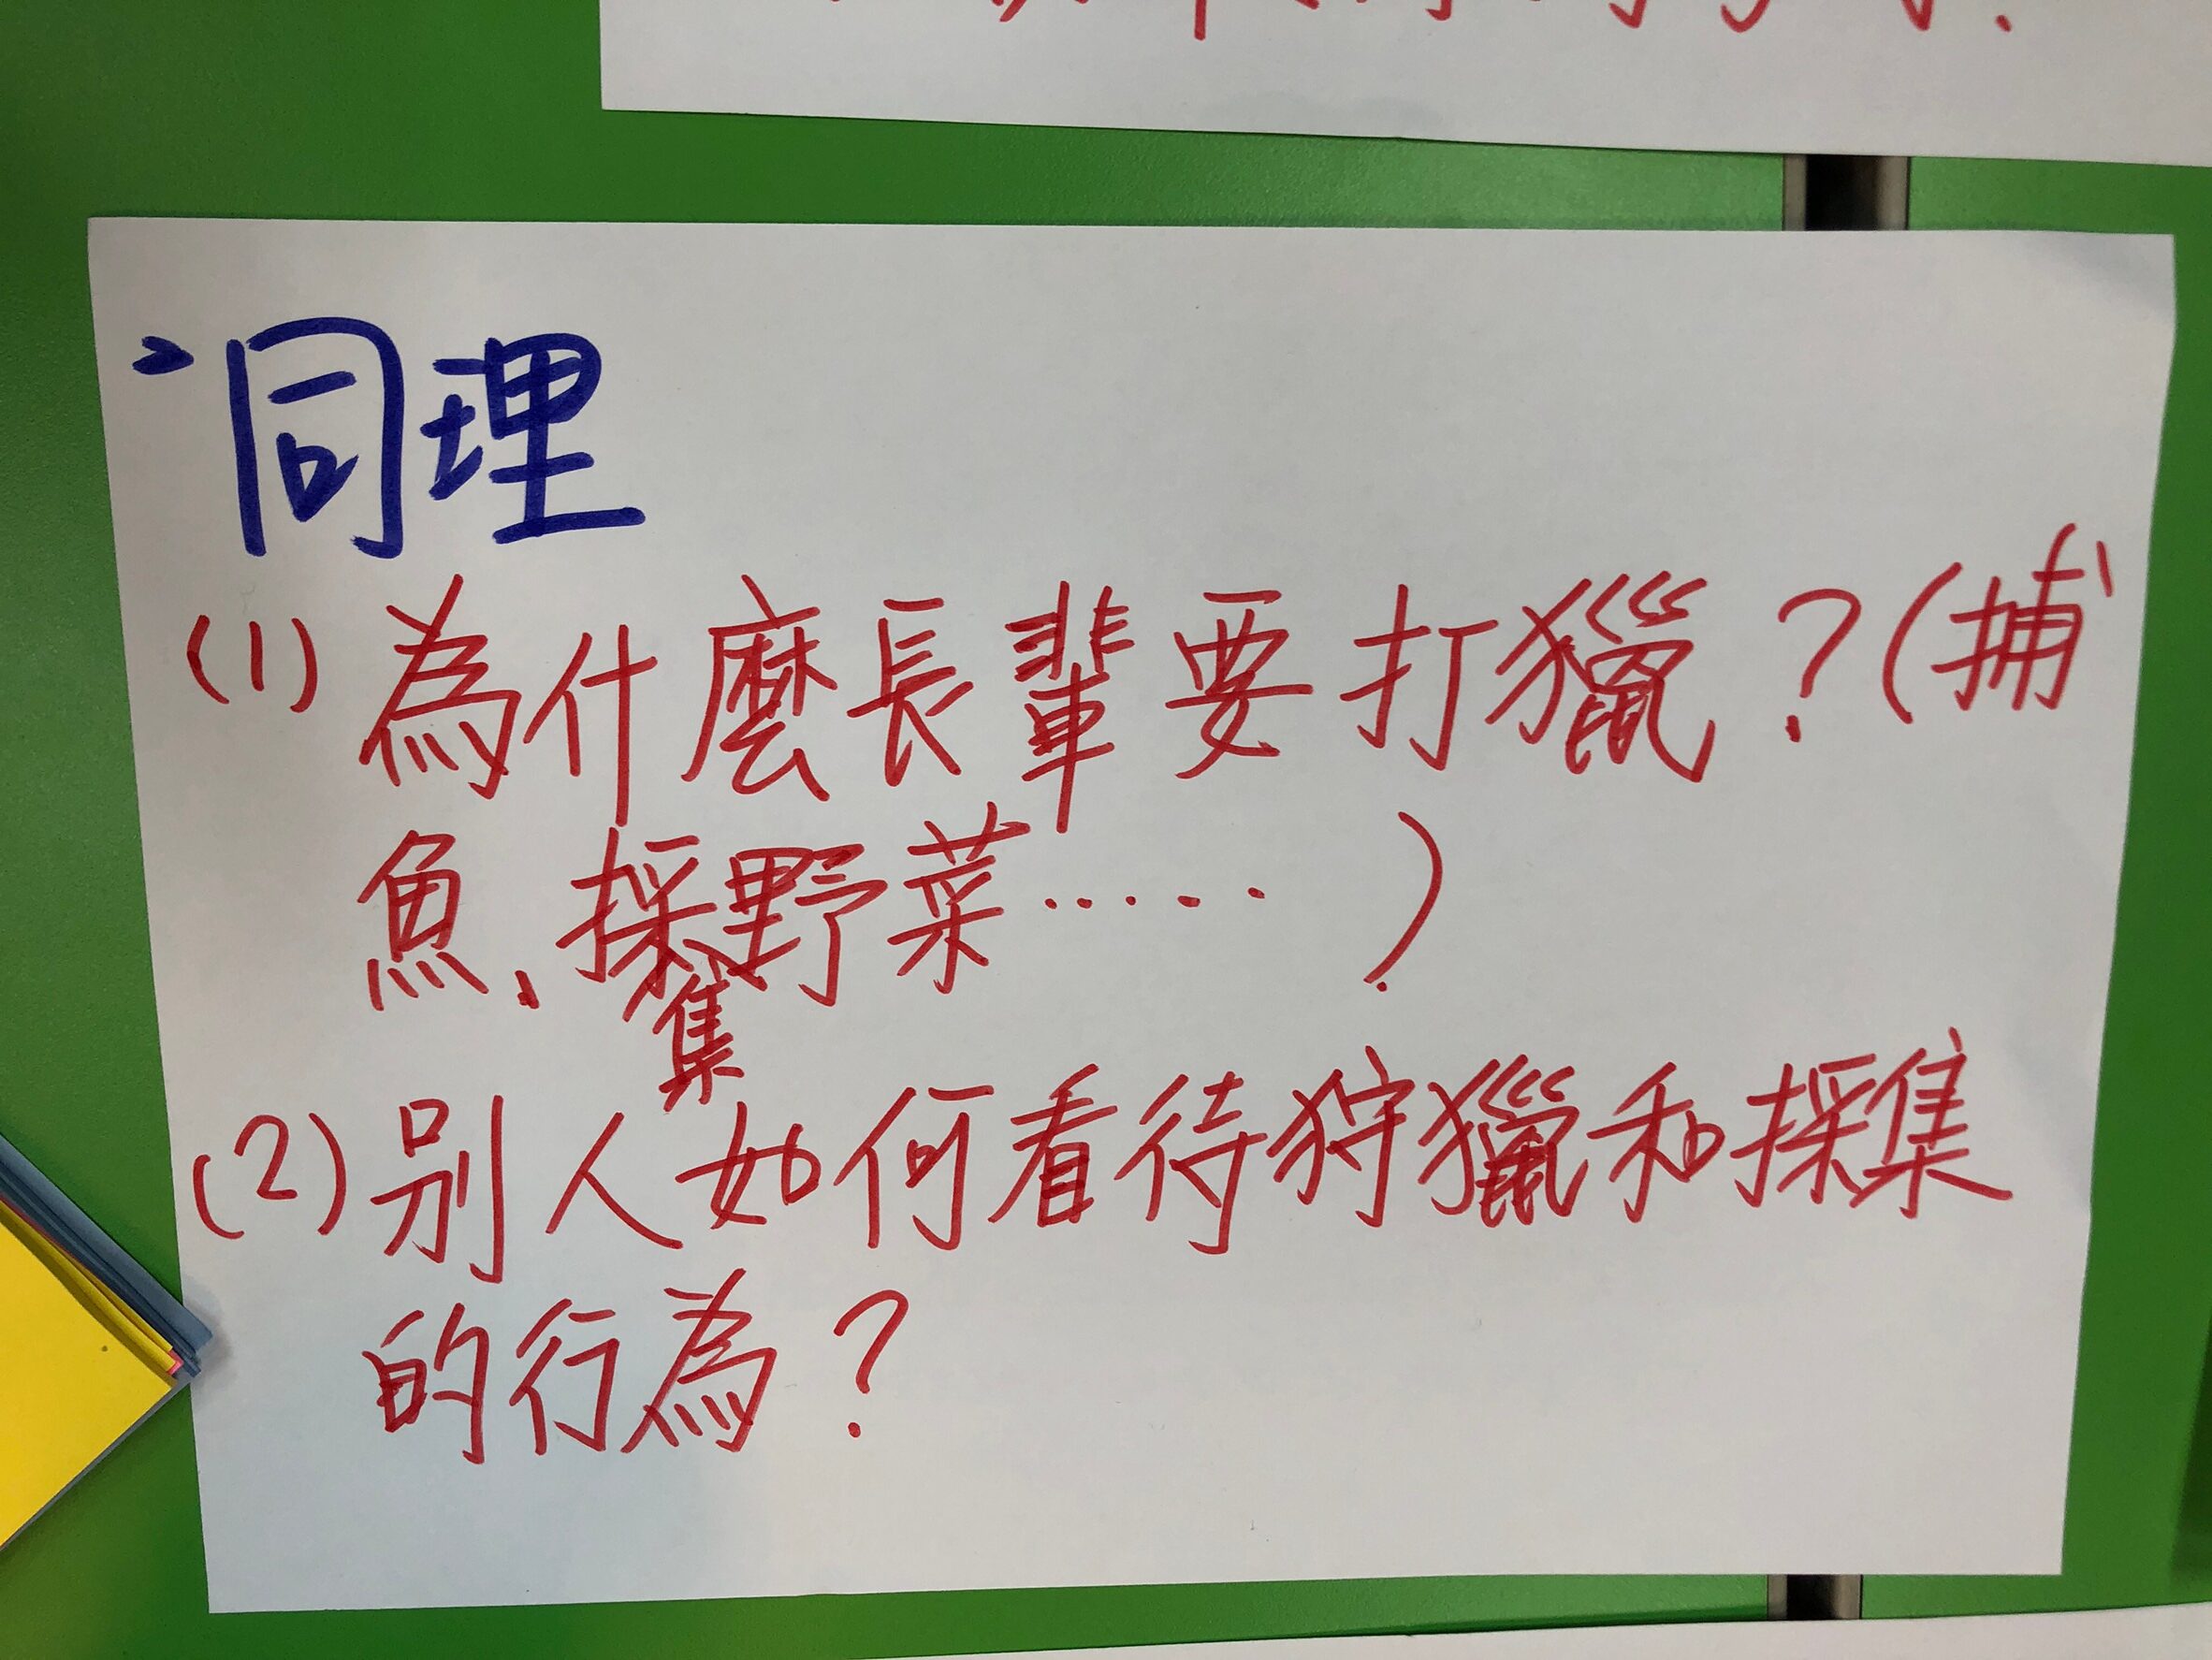 二同理
(1) 為什麼長輩要打獵？(捕
魚、採集野菜……)
(2) 別人如何看待狩獵和採集
的行為？